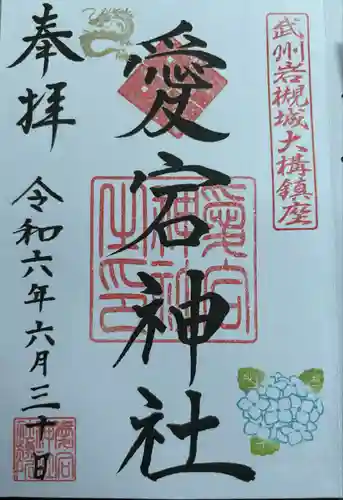 武州岩槻城大構鎮座
愛宕神社
愛宕神社之印
奉拝
令和六年六月三十日